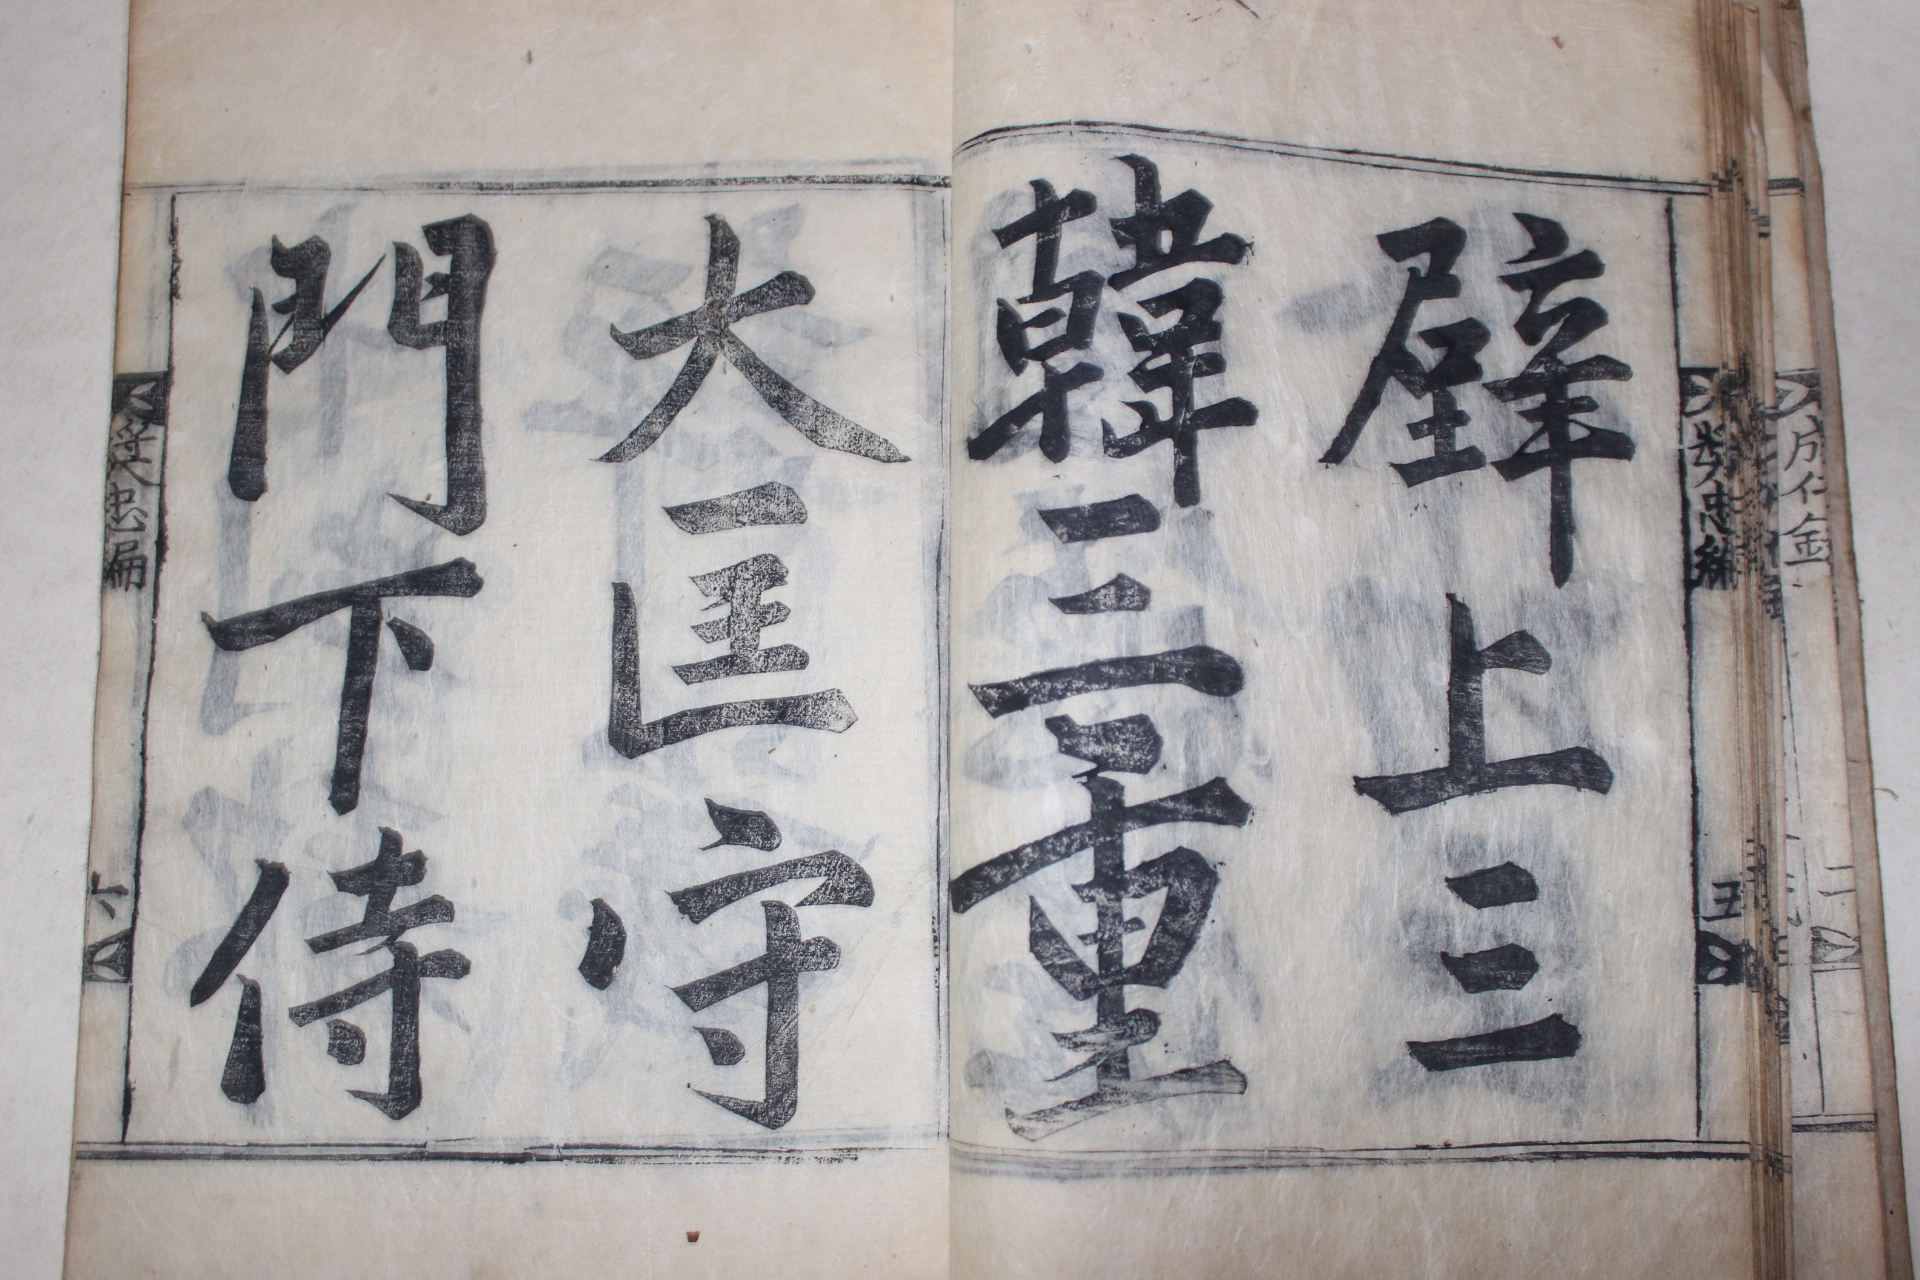 壁上三
韓三重
大匡守
門下侍
忠編
五
忠編
六